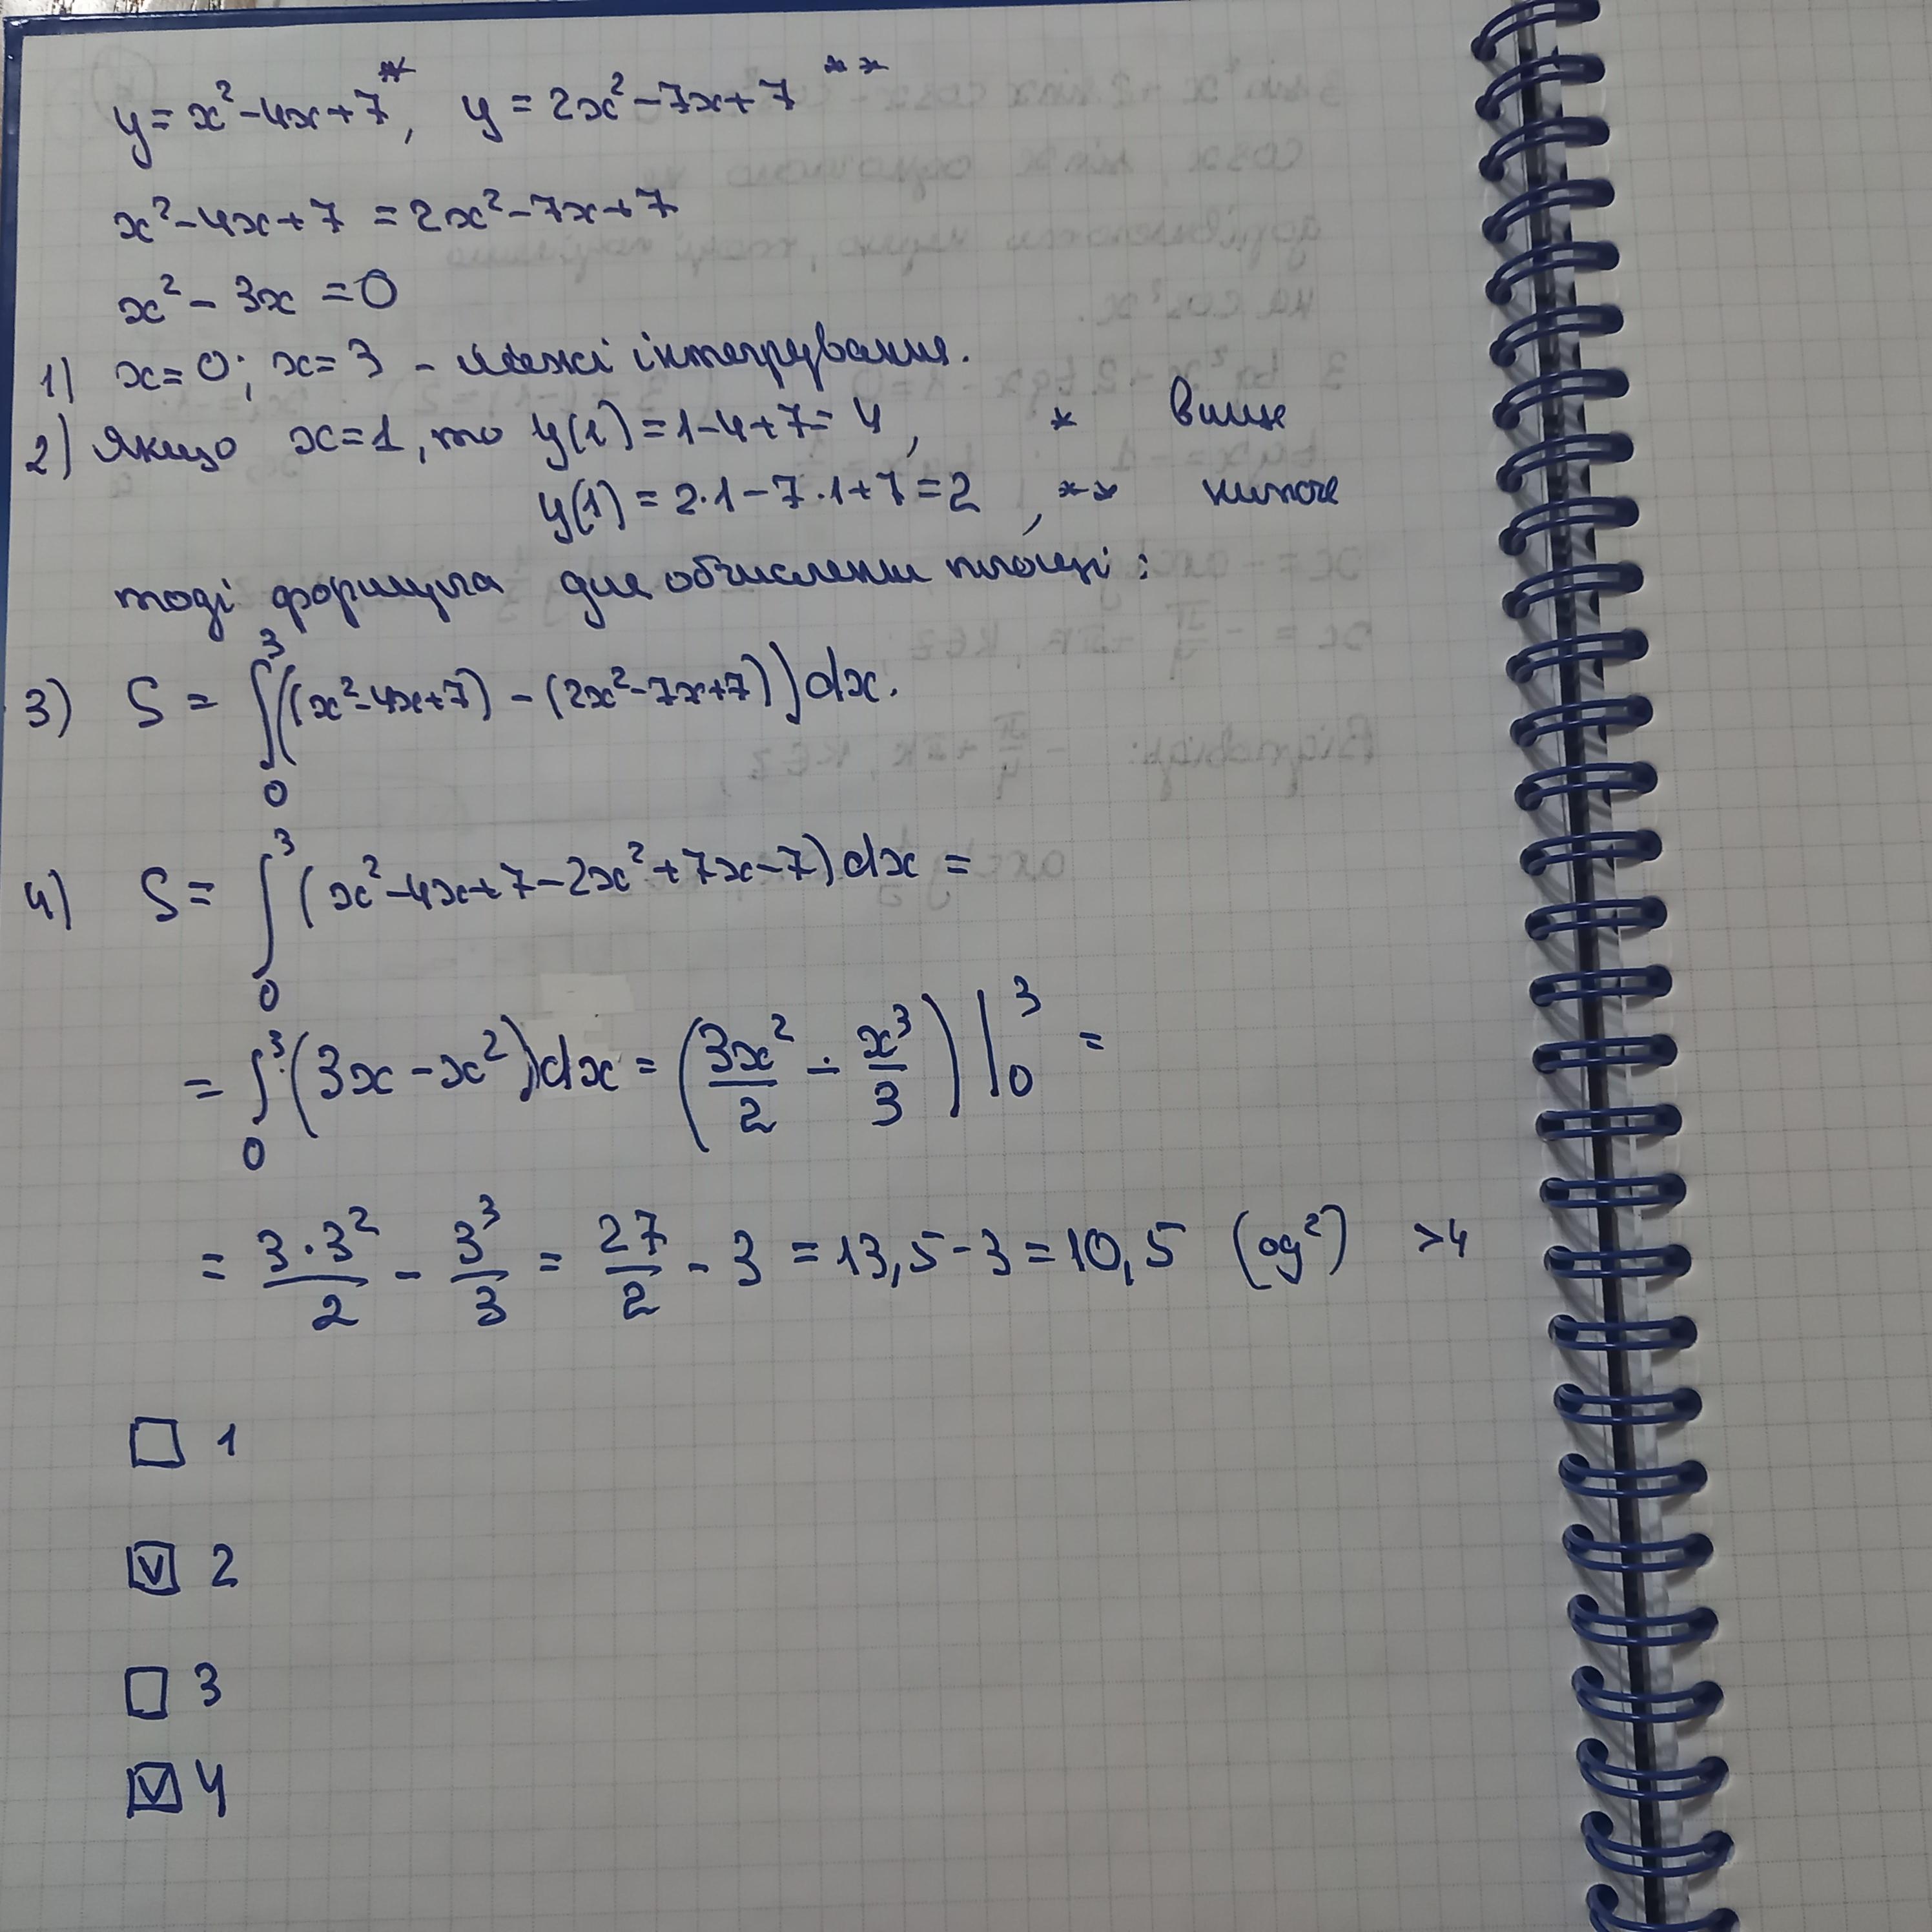 y = x² - 4x + 7 *, y = 2x² - 7x + 7 **
x² - 4x + 7 = 2x² - 7x + 7
x² - 3x = 0
1) x = 0; x = 3 - межі інтегрування.
2) Якщо x = 1, то y(1) = 1 - 4 + 7 = 4, * вище
y(1) = 2·1 - 7·1 + 7 = 2, ** нижче
тоді формула для обчислення площі:
3) S = ∫₀³ ((x² - 4x + 7) - (2x² - 7x + 7)) dx.
4) S = ∫₀³ (x² - 4x + 7 - 2x² + 7x - 7) dx =
= ∫₀³ (3x - x²) dx = (3x²/2 - x³/3) |₀³ =
= 3·3²/2 - 3³/3 = 27/2 - 3 = 13,5 - 3 = 10,5 (од²) >4
☐ 1
☑ 2
☐ 3
☑ 4